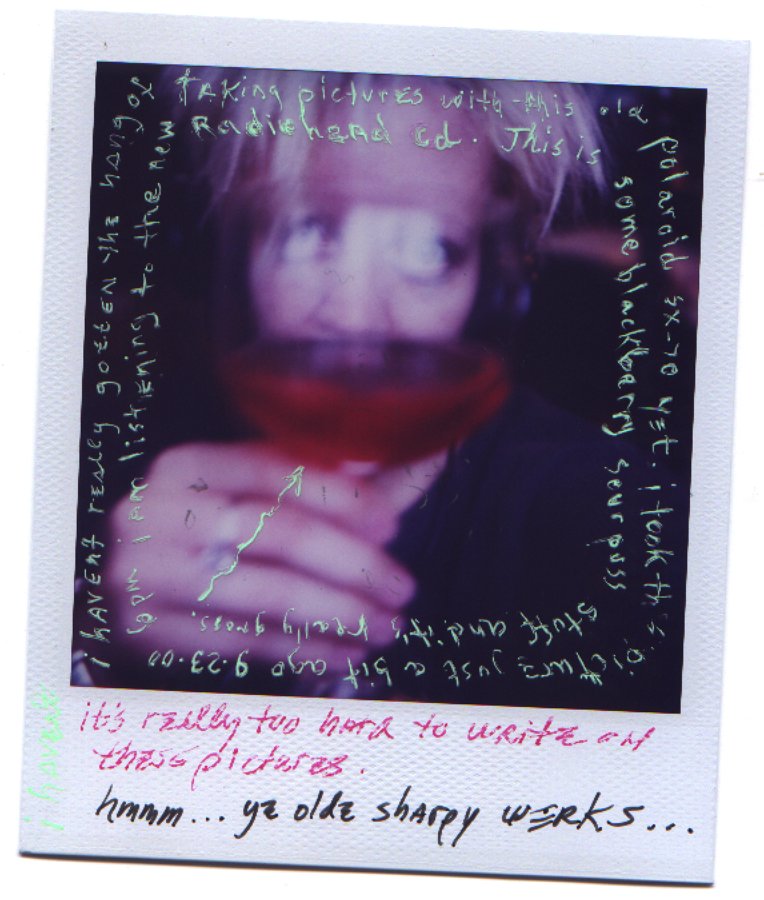 i havent really gotten the hang of
taking pictures with this old
polaroid sx-70 yet. i took this
picture just a bit ago 9.23.00
6pm i am listening to the new
Radiohead cd. This is
some blackberry sour puss
stuff and it's really gross.
i havent
it's really too hard to write on
these pictures.
hmmm... ye olde sharpy werks...